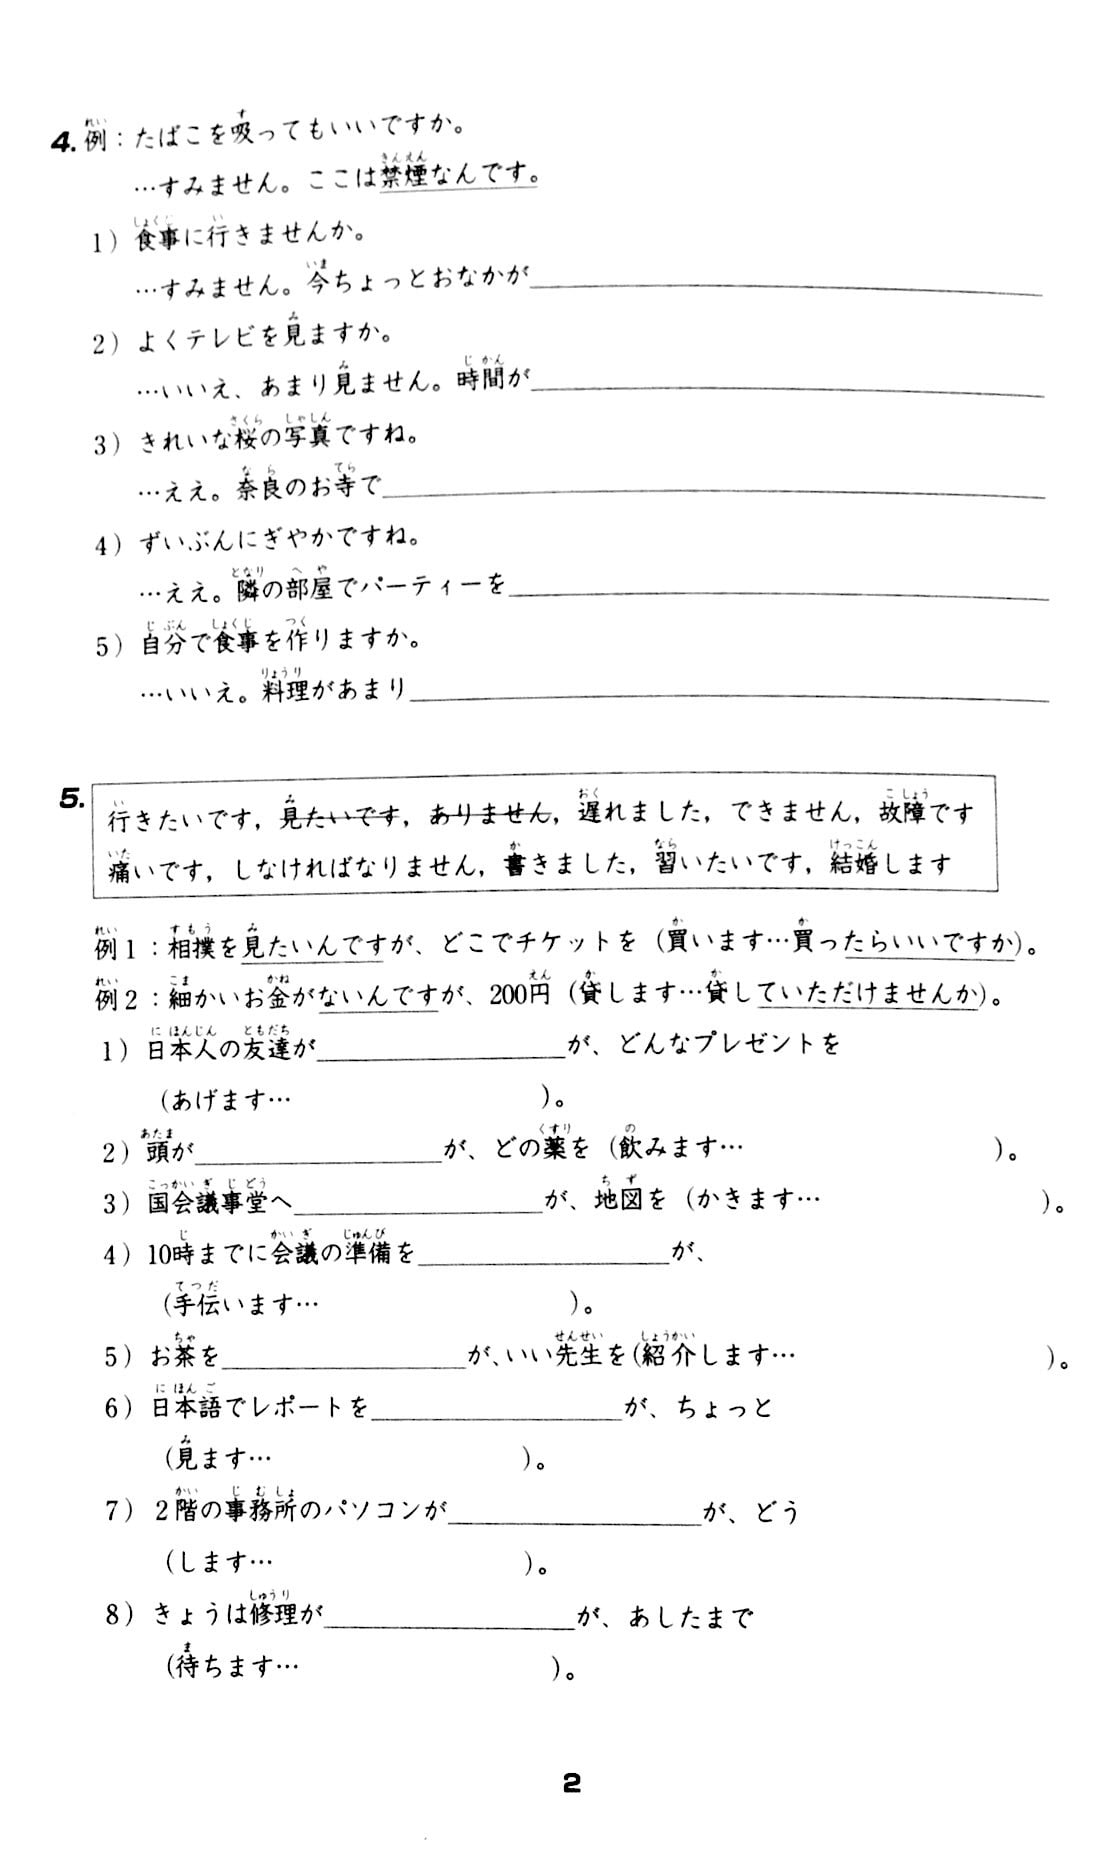 4. 例：たばこを吸ってもいいですか。
…すみません。ここは禁煙なんです。
1）食事に行きませんか。
…すみません。今ちょっとおなかが
2）よくテレビを見ますか。
…いいえ、あまり見ません。時間が
3）きれいな桜の写真ですね。
…ええ。奈良のお寺で
4）ずいぶんにぎやかですね。
…ええ。隣の部屋でパーティーを
5）自分で食事を作りますか。
…いいえ。料理があまり
5. 行きたいです，見たいです，ありません，遅れました，できません，故障です
痛いです，しなければなりません，書きました，習いたいです，結婚します
例1：相撲を見たいんですが、どこでチケットを（買います…買ったらいいですか）。
例2：細かいお金がないんですが、200円（貸します…貸していただけませんか）。
1）日本人の友達が が、どんなプレゼントを
（あげます… ）。
2）頭が が、どの薬を（飲みます… ）。
3）国会議事堂へ が、地図を（かきます… ）。
4）10時までに会議の準備を が、
（手伝います… ）。
5）お茶を が、いい先生を（紹介します… ）。
6）日本語でレポートを が、ちょっと
（見ます… ）。
7）2階の事務所のパソコンが が、どう
（します… ）。
8）きょうは修理が が、あしたまで
（待ちます… ）。
2